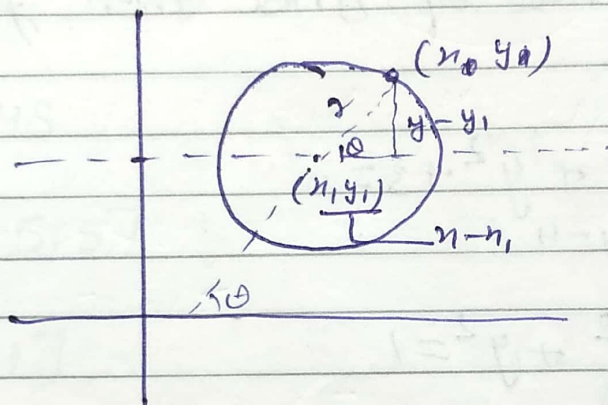 (x, y)
r
y - y₁
θ
(x₁ y₁)
x - x₁
θ
+ y² = 1